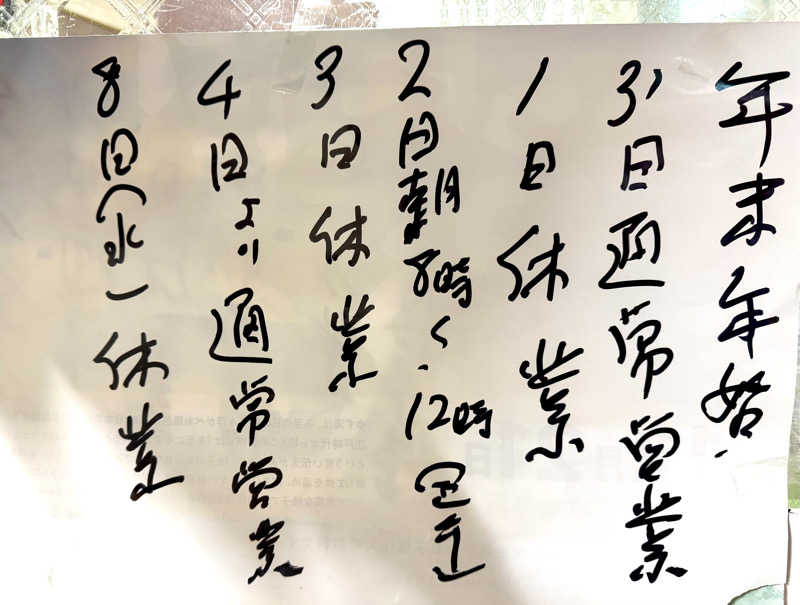 年末年始
31日通常営業
1日休業
2日朝8時〜12時
3日休業
4日より通常営業
8日(水)休業